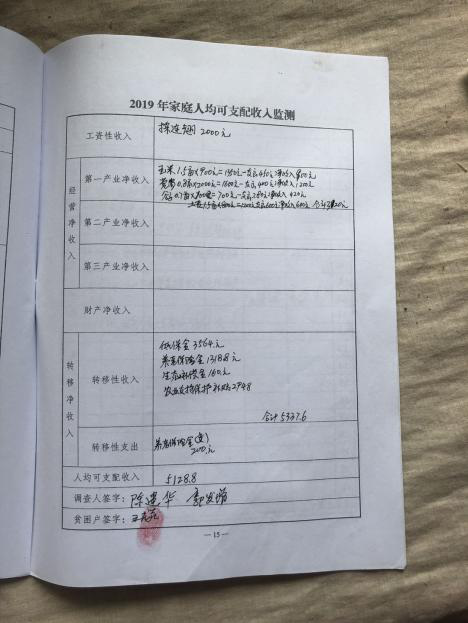 2019 年家庭人均可支配收入监测
工资性收入
採连翘 2000元
经营净收入
第一产业净收入
玉米 1.5亩×900元=1350元-支出450元净收入900元
0.8亩×2000元=1600元-支出400元净收入1200元
谷子0.7亩×1000元=700元-支出280元净收入420元
第二产业净收入
第三产业净收入
财产净收入
转移净收入
转移性收入
低保金3564元
养老保险金1318.8元
生态补偿金160元
农业支持保护补贴294.8
合计5337.6
转移性支出
养老保险金(支)
200元
人均可支配收入
5128.8
调查人签字：陈建华
贫困户签字：
— 15 —